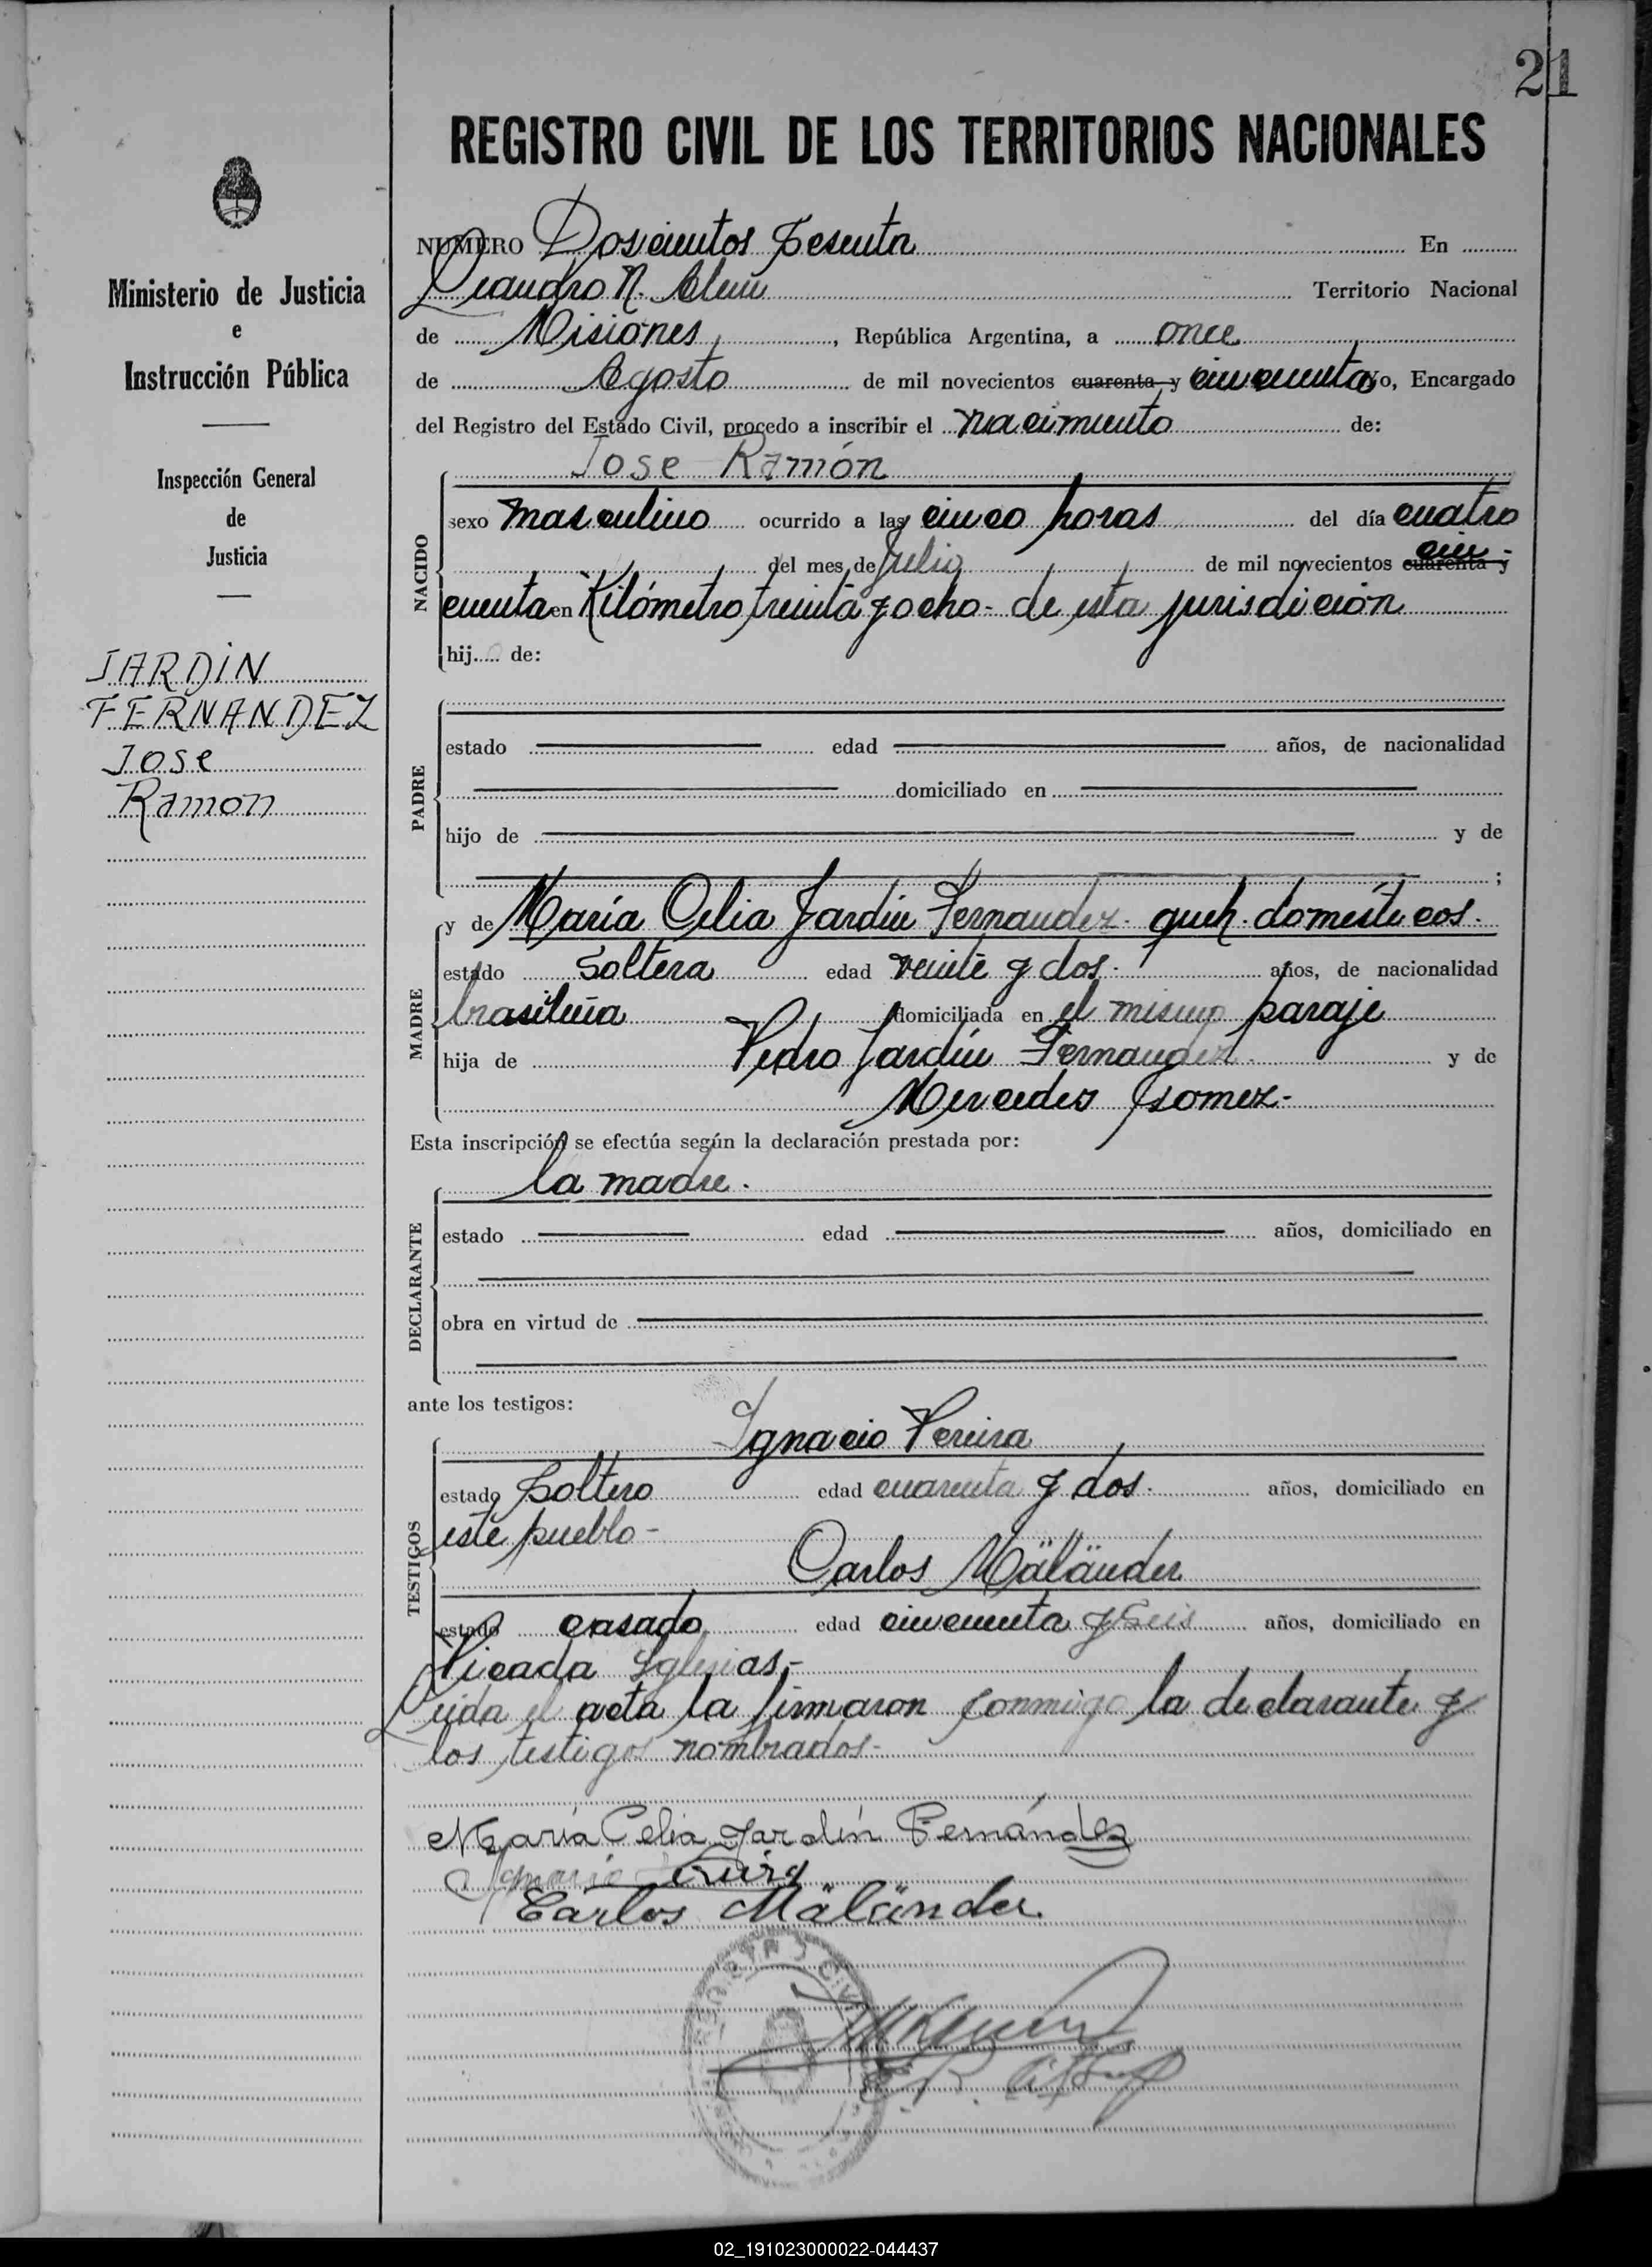 21
REGISTRO CIVIL DE LOS TERRITORIOS NACIONALES
Ministerio de Justicia
e
Instrucción Pública
Inspección General
de
Justicia
JARDIN
FERNANDEZ
Jose
Ramon
NUMERO Doscientos Sesenta En
Leandro N. Alem Territorio Nacional
de Misiones, República Argentina, a once
de Agosto de mil novecientos cuarenta y cincuenta Yo, Encargado
del Registro del Estado Civil, procedo a inscribir el nacimiento de:
Jose Ramón
NACIDO
sexo masculino ocurrido a las cinco horas del día cuatro
del mes de Julio de mil novecientos cuarenta y cin-
cuenta en Kilómetro treinta y ocho - de esta jurisdición
hijo de:
PADRE
estado edad años, de nacionalidad
domiciliado en
hijo de y de
;
MADRE
y de María Celia Jardín Fernandez - queh. domésticos.
estado Soltera edad veinte y dos. años, de nacionalidad
brasileña domiciliada en el mismo paraje
hija de Pedro Jardín Fernandez y de
Mercedes Gomez.-
Esta inscripción se efectúa según la declaración prestada por:
la madre.
DECLARANTE
estado edad años, domiciliado en
obra en virtud de
ante los testigos:
TESTIGOS
Ignacio Pereira
estado Soltero edad cuarenta y dos. años, domiciliado en
este pueblo-
Carlos Mäländer
estado casado edad cincuenta y Seis años, domiciliado en
Picada Iglesias,-
Leida el acta la firmaron conmigo la declarante y
los testigos nombrados-
María Celia Jardín Fernández
Ignacio
Carlos Mäländer
REGISTRO CIVIL
02_191023000022-044437